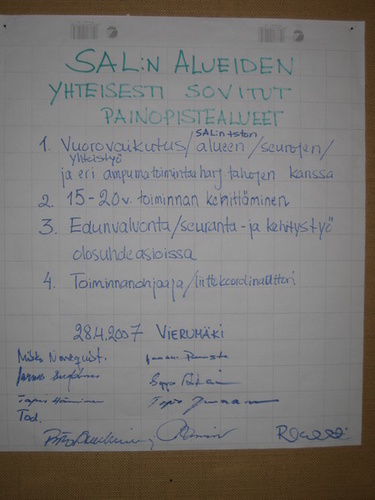 SAL:N ALUEIDEN
YHTEISESTI SOVITUT
PAINOPISTEALUEET
SAL:n+ston
1. Vuorovaikutus/alueen/seurojen/
yhteistyö
ja eri ampumatoimintaharj tahojen kanssa
2. 15-20v. toiminnan kehittäminen
3. Edunvalvonta/seuranta- ja kehitystyö
olosuhdeasioissa
4. Toiminnanohjaaja/liittokoordinaattori
28.4.2007 VIERUMÄKI
Tod.